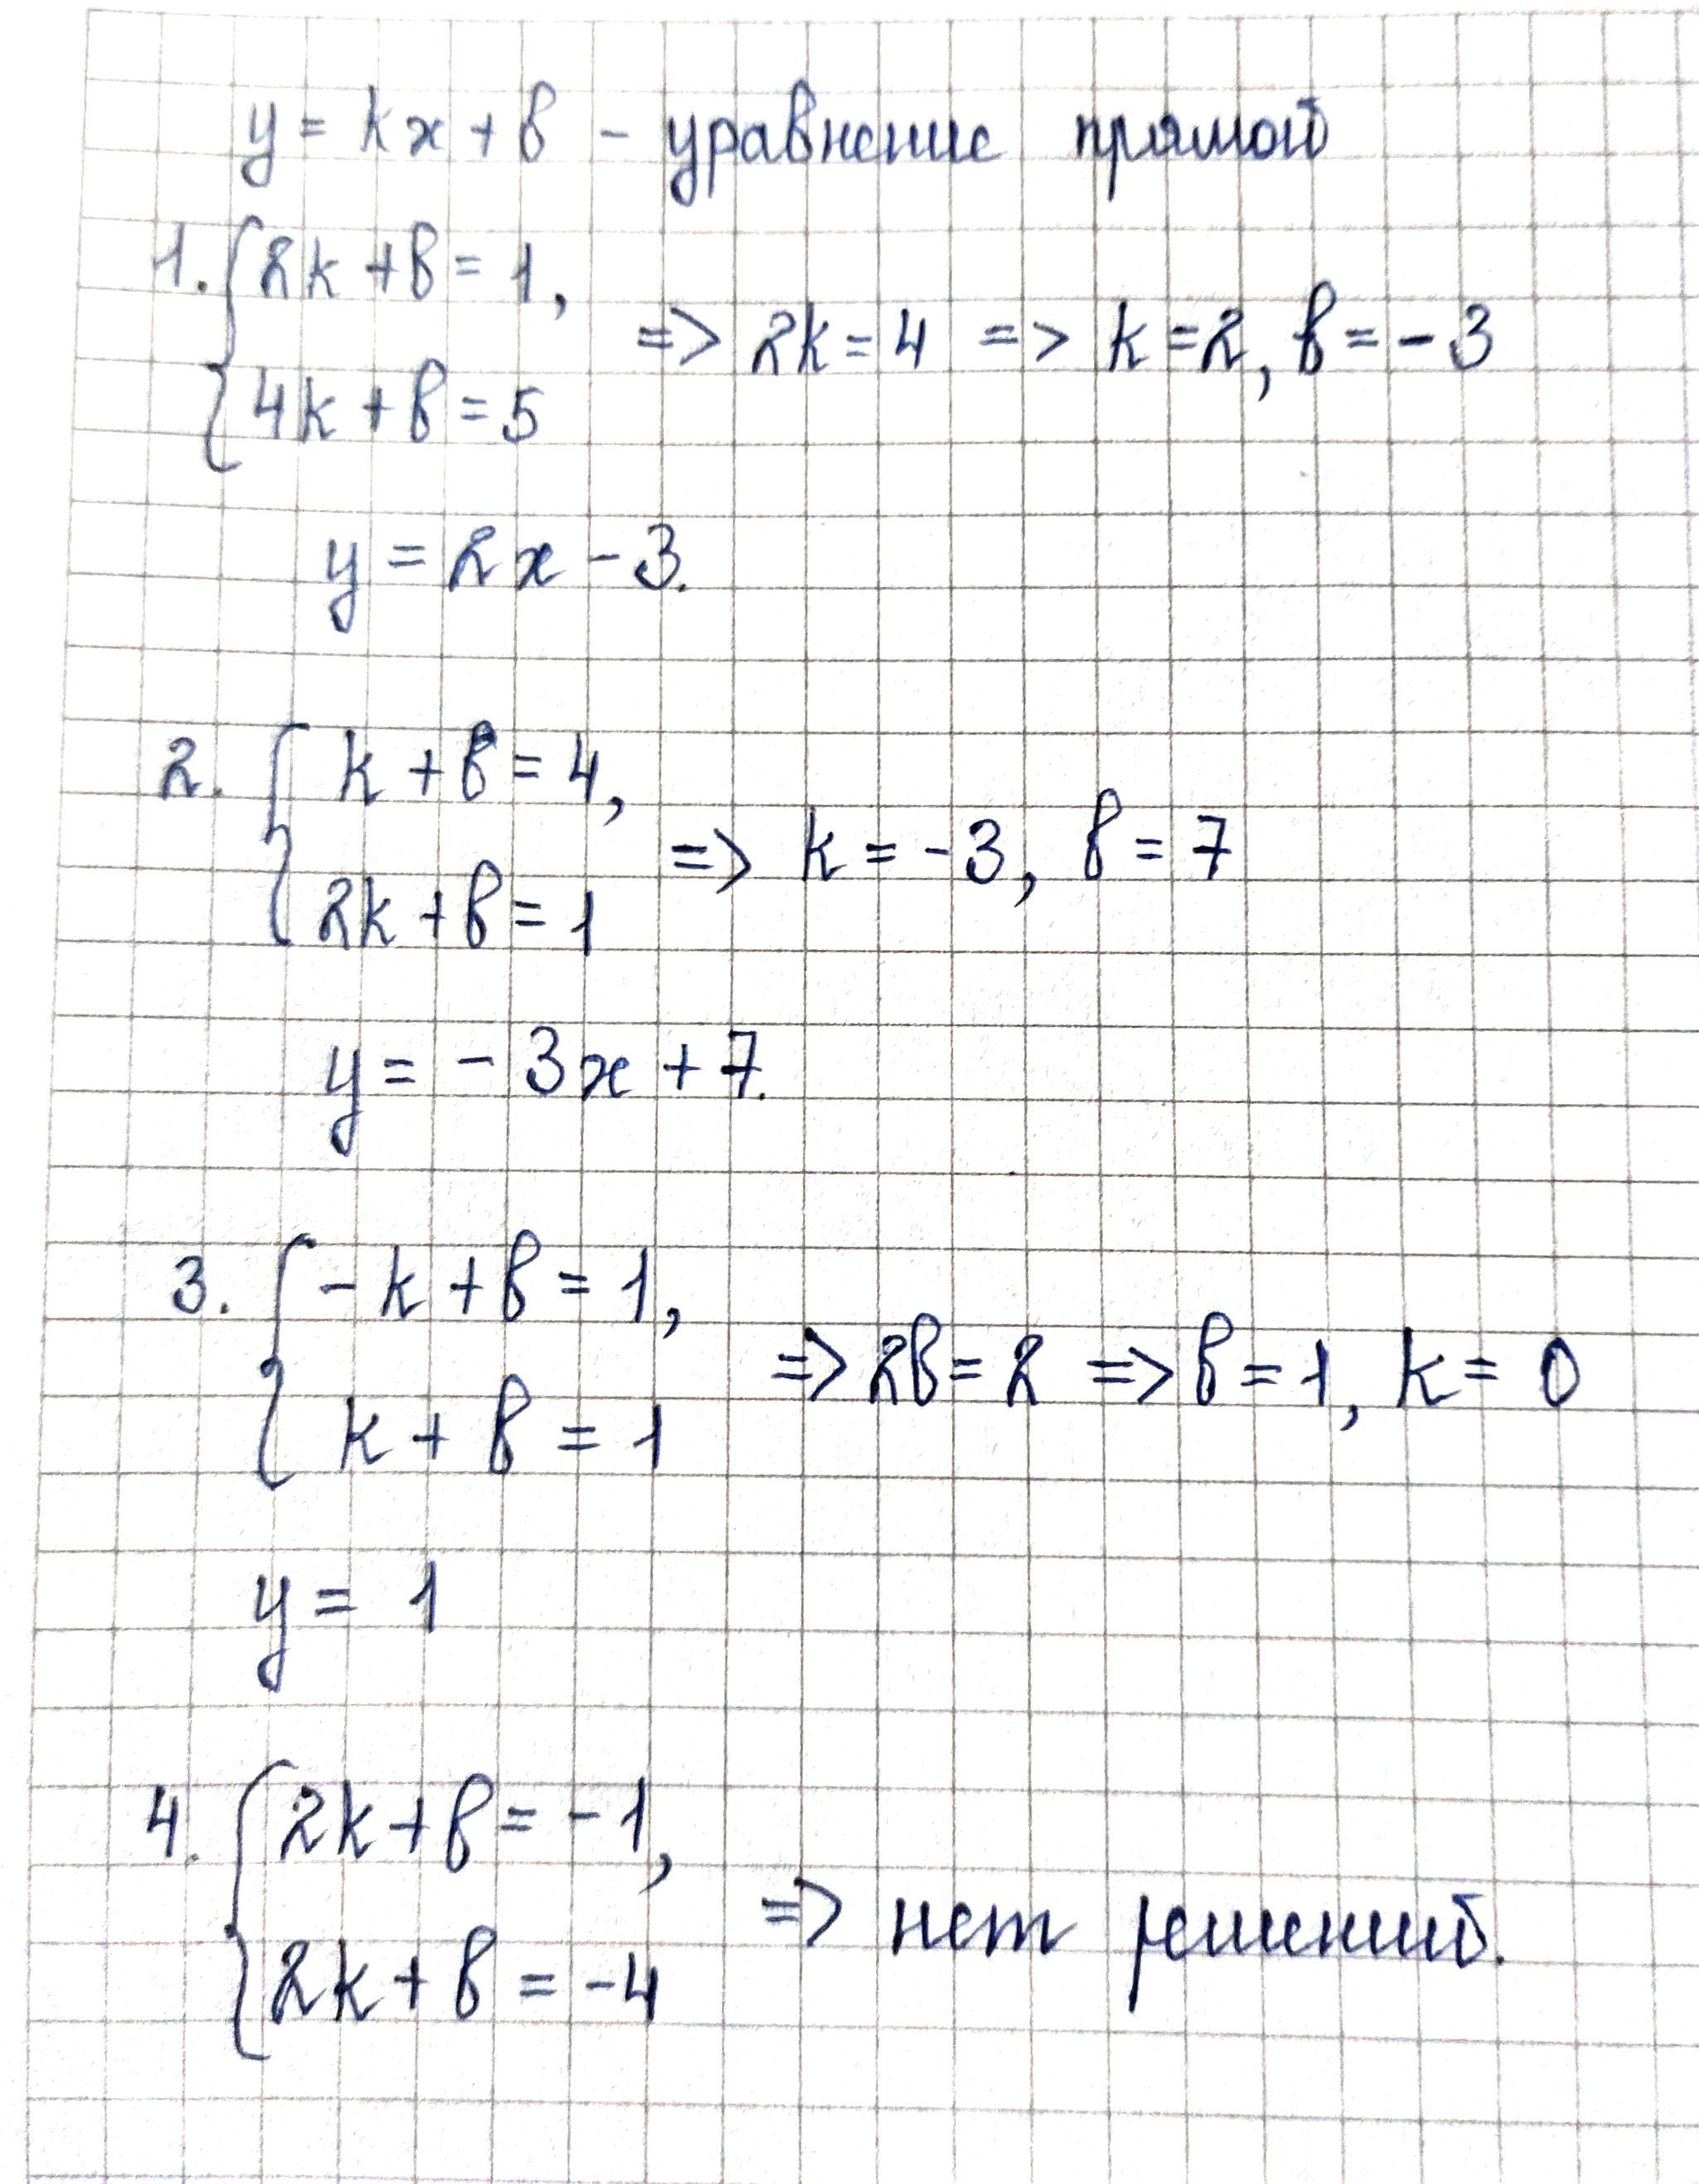 y = kx + b - уравнение прямой
1. { 2k + b = 1,
4k + b = 5
=> 2k = 4 => k = 2, b = -3
y = 2x - 3.
2. { k + b = 4,
2k + b = 1
=> k = -3, b = 7
y = -3x + 7.
3. { -k + b = 1,
k + b = 1
=> 2b = 2 => b = 1, k = 0
y = 1
4. { 2k + b = -1,
2k + b = -4
=> нет решений.